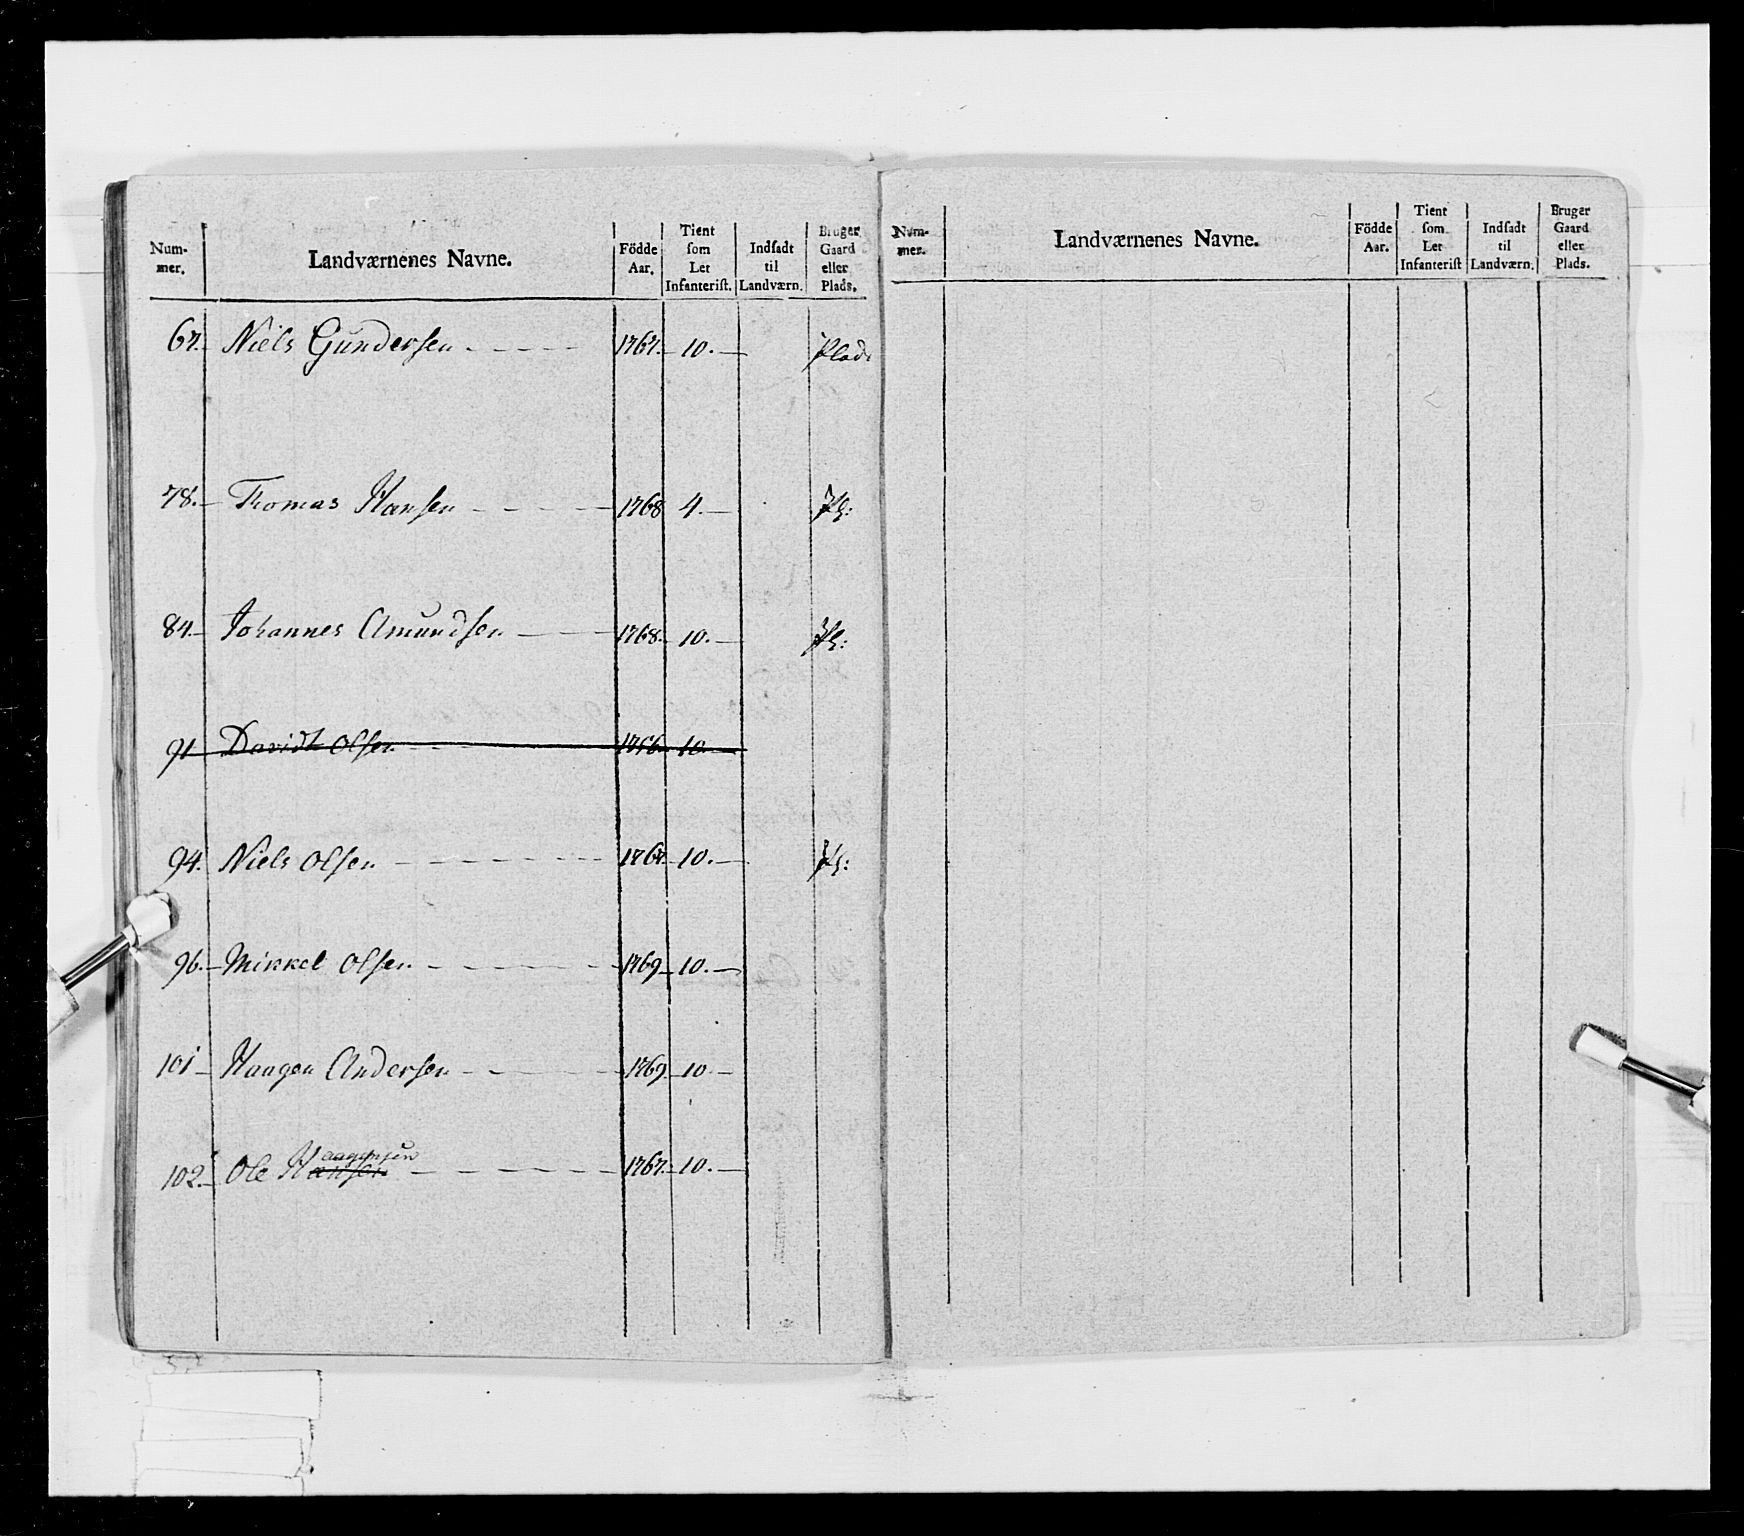 Num-
mer.
Landværnenes Navne.
Födde
Aar.
Tient
som
Let
Infanterist.
Indsadt
til
Landværn.
Bruger
Gaard
eller
Plads.
67. Niels Gundersen 1767. 10. Plads
78. Thomas Hansen 1768 4. Pl:
84. Johannes Amundsen 1768. 10. Pl:
91 Davidt Olsen 1756. 10.
94. Niels Olsen 1767. 10. Pl:
96. Mikkel Olsen 1769 10.
101 Haagen Andersen 1769 10
aagensen
102. Ole Hansen 1767. 10.
Num-
mer.
Landværnenes Navne.
Födde
Aar.
Tient
som
Let
Infanterist
Indsadt
til
Landværn.
Bruger
Gaard
eller
Plads.